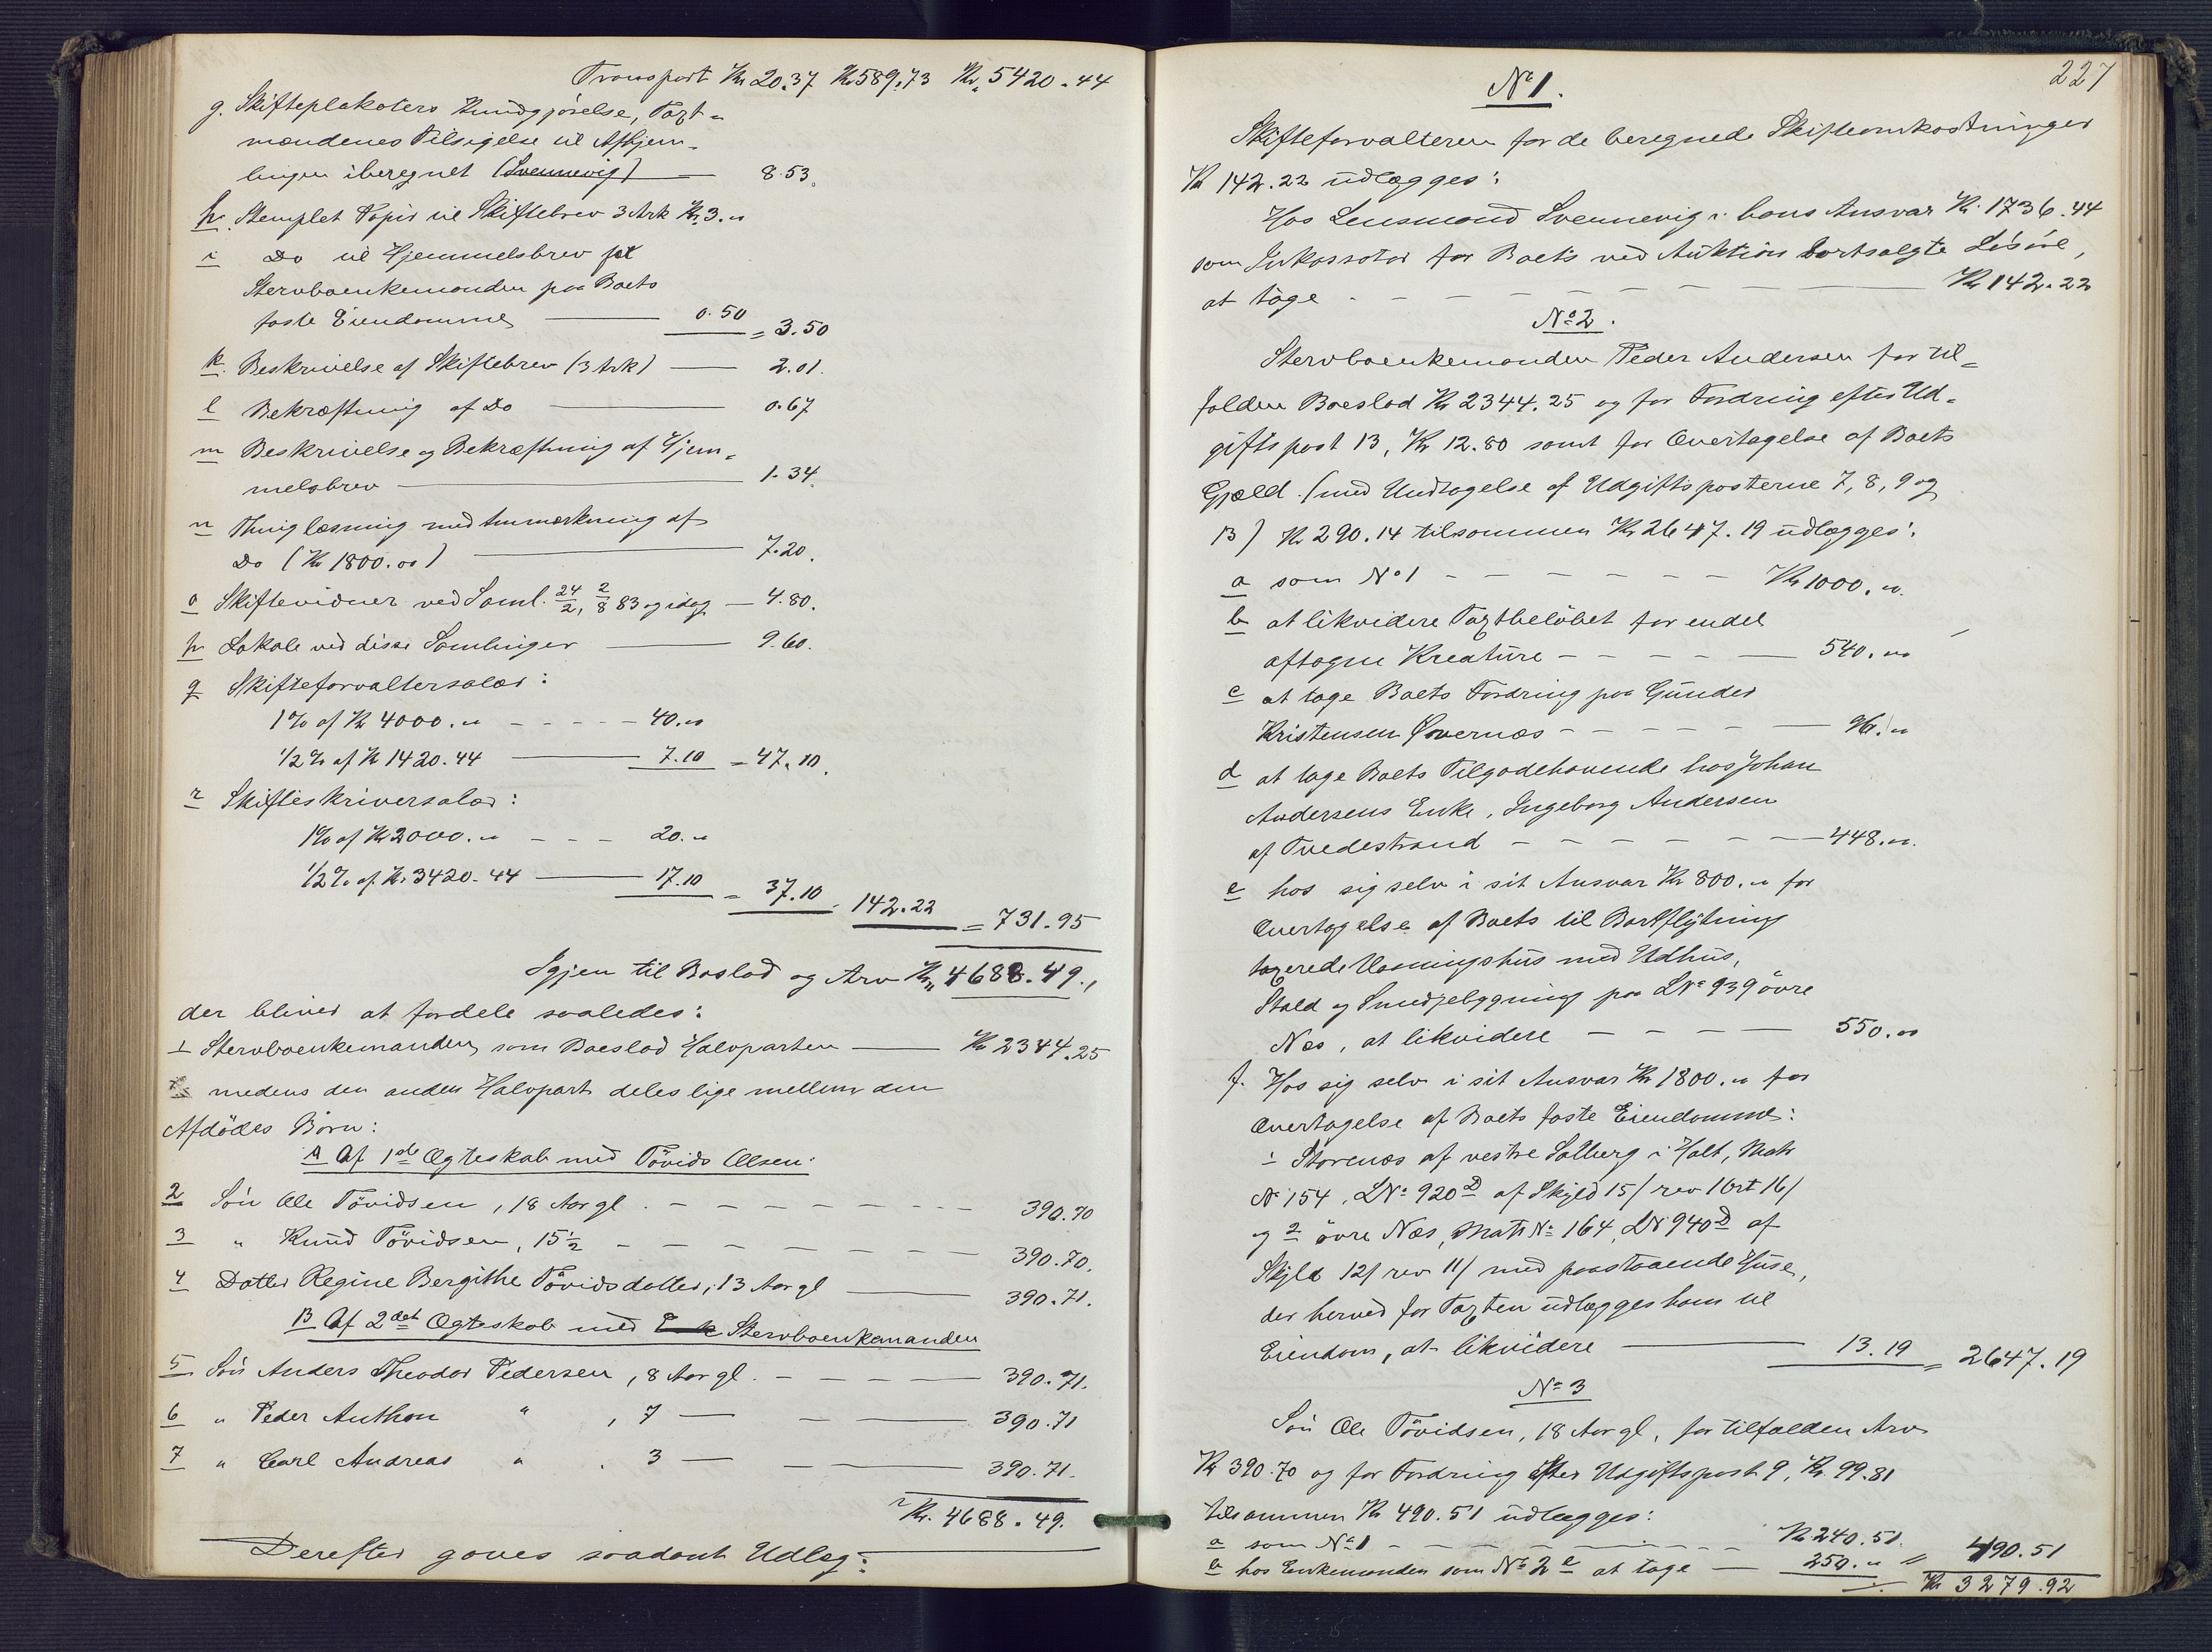 Transport Kr 20.37 Kr 589.73 Kr. 5420.44
g. Skifteplakaters Kundgjørelse, Taxt-
mændenes Tilsigelse til Afhjem-
lingen iberegnet (Svennevig) — 8.53.
h. Stemplet Papir til Skiftebrev 3 Ark Kr. 3. "
i Do til Hjemmelsbrev for
Stervboenkemanden paa Boets
faste Eiendomme — 0.50 = 3.50
k. Beskrivelse af Skiftebrev (3 Ark) — 2.01.
l Bekræftning af Do — 0.67
m Beskrivelse og Bekræftning af Hjem-
melsbrev — 1.34.
n Thinglæsning med Anmærkning af
Do (Kr 1800.00) — 7.20.
o Skiftevidner ved Saml. 24/2, 2/8 83 og idag — 4.80.
p Lokale ved disse Samlinger — 9.60.
q Skifteforvaltersalær:
1% af Kr 4000. " - - - - 40. "
1/2% af Kr 1420.44 — 7.10 = 47.10.
r Skifteskriversalær:
1% af Kr 2000. " - - - 20. "
1/2% af Kr. 3420.44 — 17.10 = 37.10 = 142.22 = 731.95
Igjen til Boslod og Arv Kr. 4688.49.,
der bliver at fordele saaledes:
1 Stervboenkemanden som Boeslod Halvparten — Kr 2344.25
medens den anden Halvpart deles lige mellem den
Afdødes Børn:
A Af 1ste Ægteskab med Tövids Olsen:
2 Søn Ole Tövidsen, 18 Aar gl. - - - - - - - 390.70
3 " Knud Tövidsen, 15 1/2 - - - - - - - 390.70.
4 Datter Regine Bergithe Tövidsdatter, 13 Aar gl — 390.71.
B Af 2det Ægteskab med Stervboenkemanden
5 Søn Anders Theodor Pedersen, 8 Aar gl. - - - - 390.71.
6 " Peder Anthon " , 7 — - — 390.71
7 " Carl Andreas " , 3 — - — 390.71.
Kr. 4688.49.
Derefter gøres saadant Udlæg:
227
No 1.
Skifteforvalteren for de beregnede Skifteomkostninger
Kr 142.22 udlægges:
Hos Lensmand Svennevig i hans Ansvar Kr. 1736.44
som Inkassator for Boets ved Auktion bortsolgte Løsøre,
at tage - - - - - - — Kr 142.22
No 2.
Stervboenkemanden Peder Andersen for til-
falden Boeslod Kr 2344.25 og for Fordring efter Ud-
giftspost 13, Kr 12.80 samt for Overtagelse af Boets
Gjæld (med Undtagelse af Udgiftsposterne 7, 8, 9 og
13) Kr 290.14 tilsammen Kr 2647.19 udlægges:
a som No 1 - - - - - - - Kr 1000. "
b at likvidere Taxtbeløbet for endel
aftagne Kreature - - - - - — 540. "
c at tage Boets Fordring paa Gunder
Kristensen Øvernæs - - - - - — 96. "
d at tage Boets Tilgodehavende hos Johan
Andersens Enke, Ingeborg Andersen
af Tvedestrand - - - - - - — 448. "
e hos sig selv i sit Ansvar Kr 800. " for
Overtagelse af Boets til Bortflytning
taxerede Vaaningshus med Udhus,
Stald og Smedjebygning paa LNo 939 øvre
Næs, at likvidere - - - - — 550. "
f. Hos sig selv i sit Ansvar Kr 1800. " for
Overtagelse af Boets faste Eiendomme:
1 Storenæs af vestre Solberg i Holt, Matr
No 154, LNo 920D af Skyld 15/ rev 1 Ort 16/
og 2 øvre Næs, Matr No 164, LNo 940D af
Skyld 12/ rev 11/ med paastaaende Huse,
der herved for Taxten udlægges ham til
Eiendom, at likvidere — 13.19 = 2647.19
No 3
Søn Ole Tövidsen, 18 Aar gl, for tilfalden Arv
Kr 390.70 og for Fordring efter Udgiftspost 9, Kr. 99.81
tilsammen Kr 490.51 udlægges:
a som No 1 - - - - - - - Kr 240.51.
b hos Enkemanden som No 2 e at tage — 250. " = 490.51
Kr 3279.92